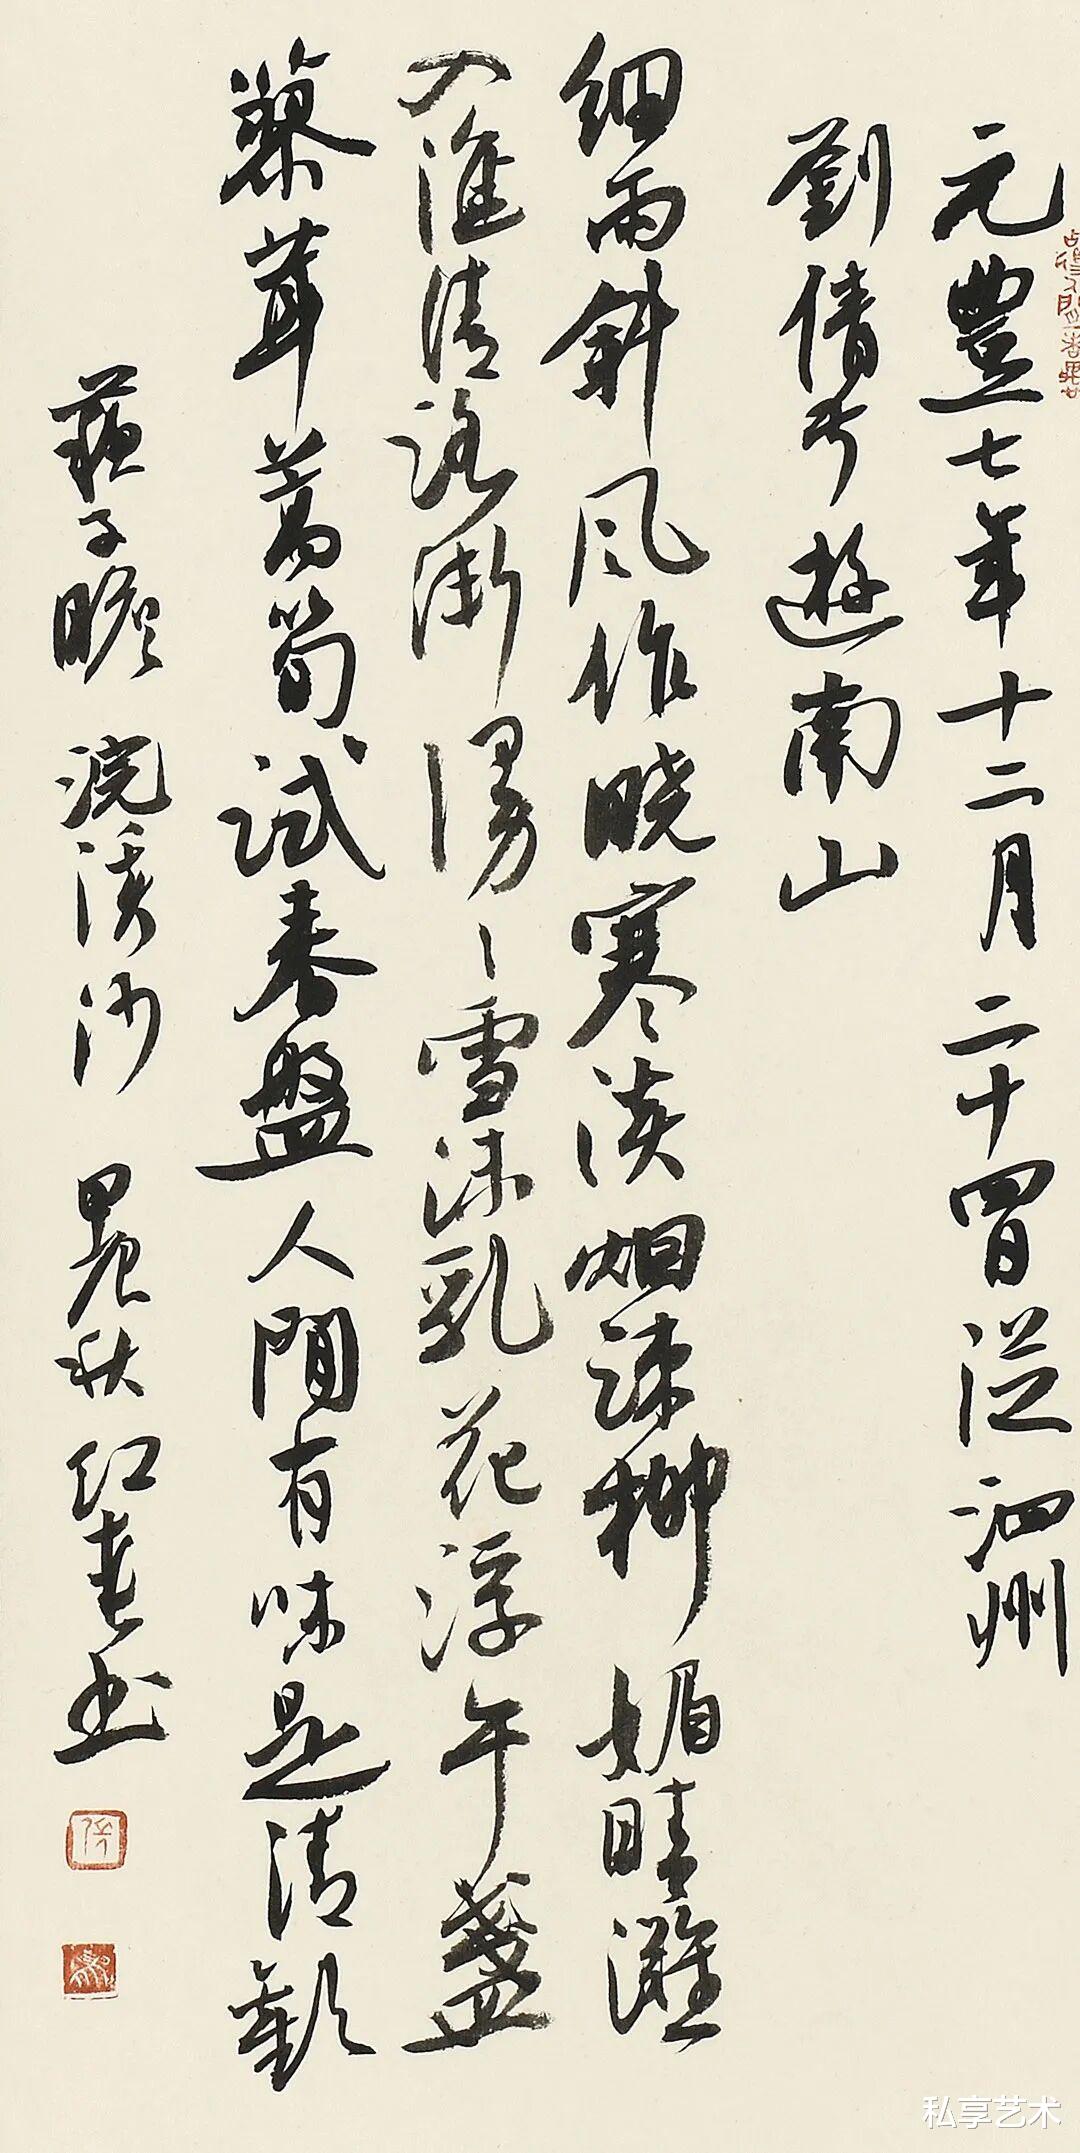 元豐七年十二月二十四日從泗州
劉倩叔遊南山
細雨斜风作晓寒淡烟疎柳媚晴灘
入淮清洛漸漫〻雪沫乳花浮午盞
蓼茸蒿筍試春盤人間有味是清歡
蘇子瞻 浣溪沙 秋 书
私享艺术